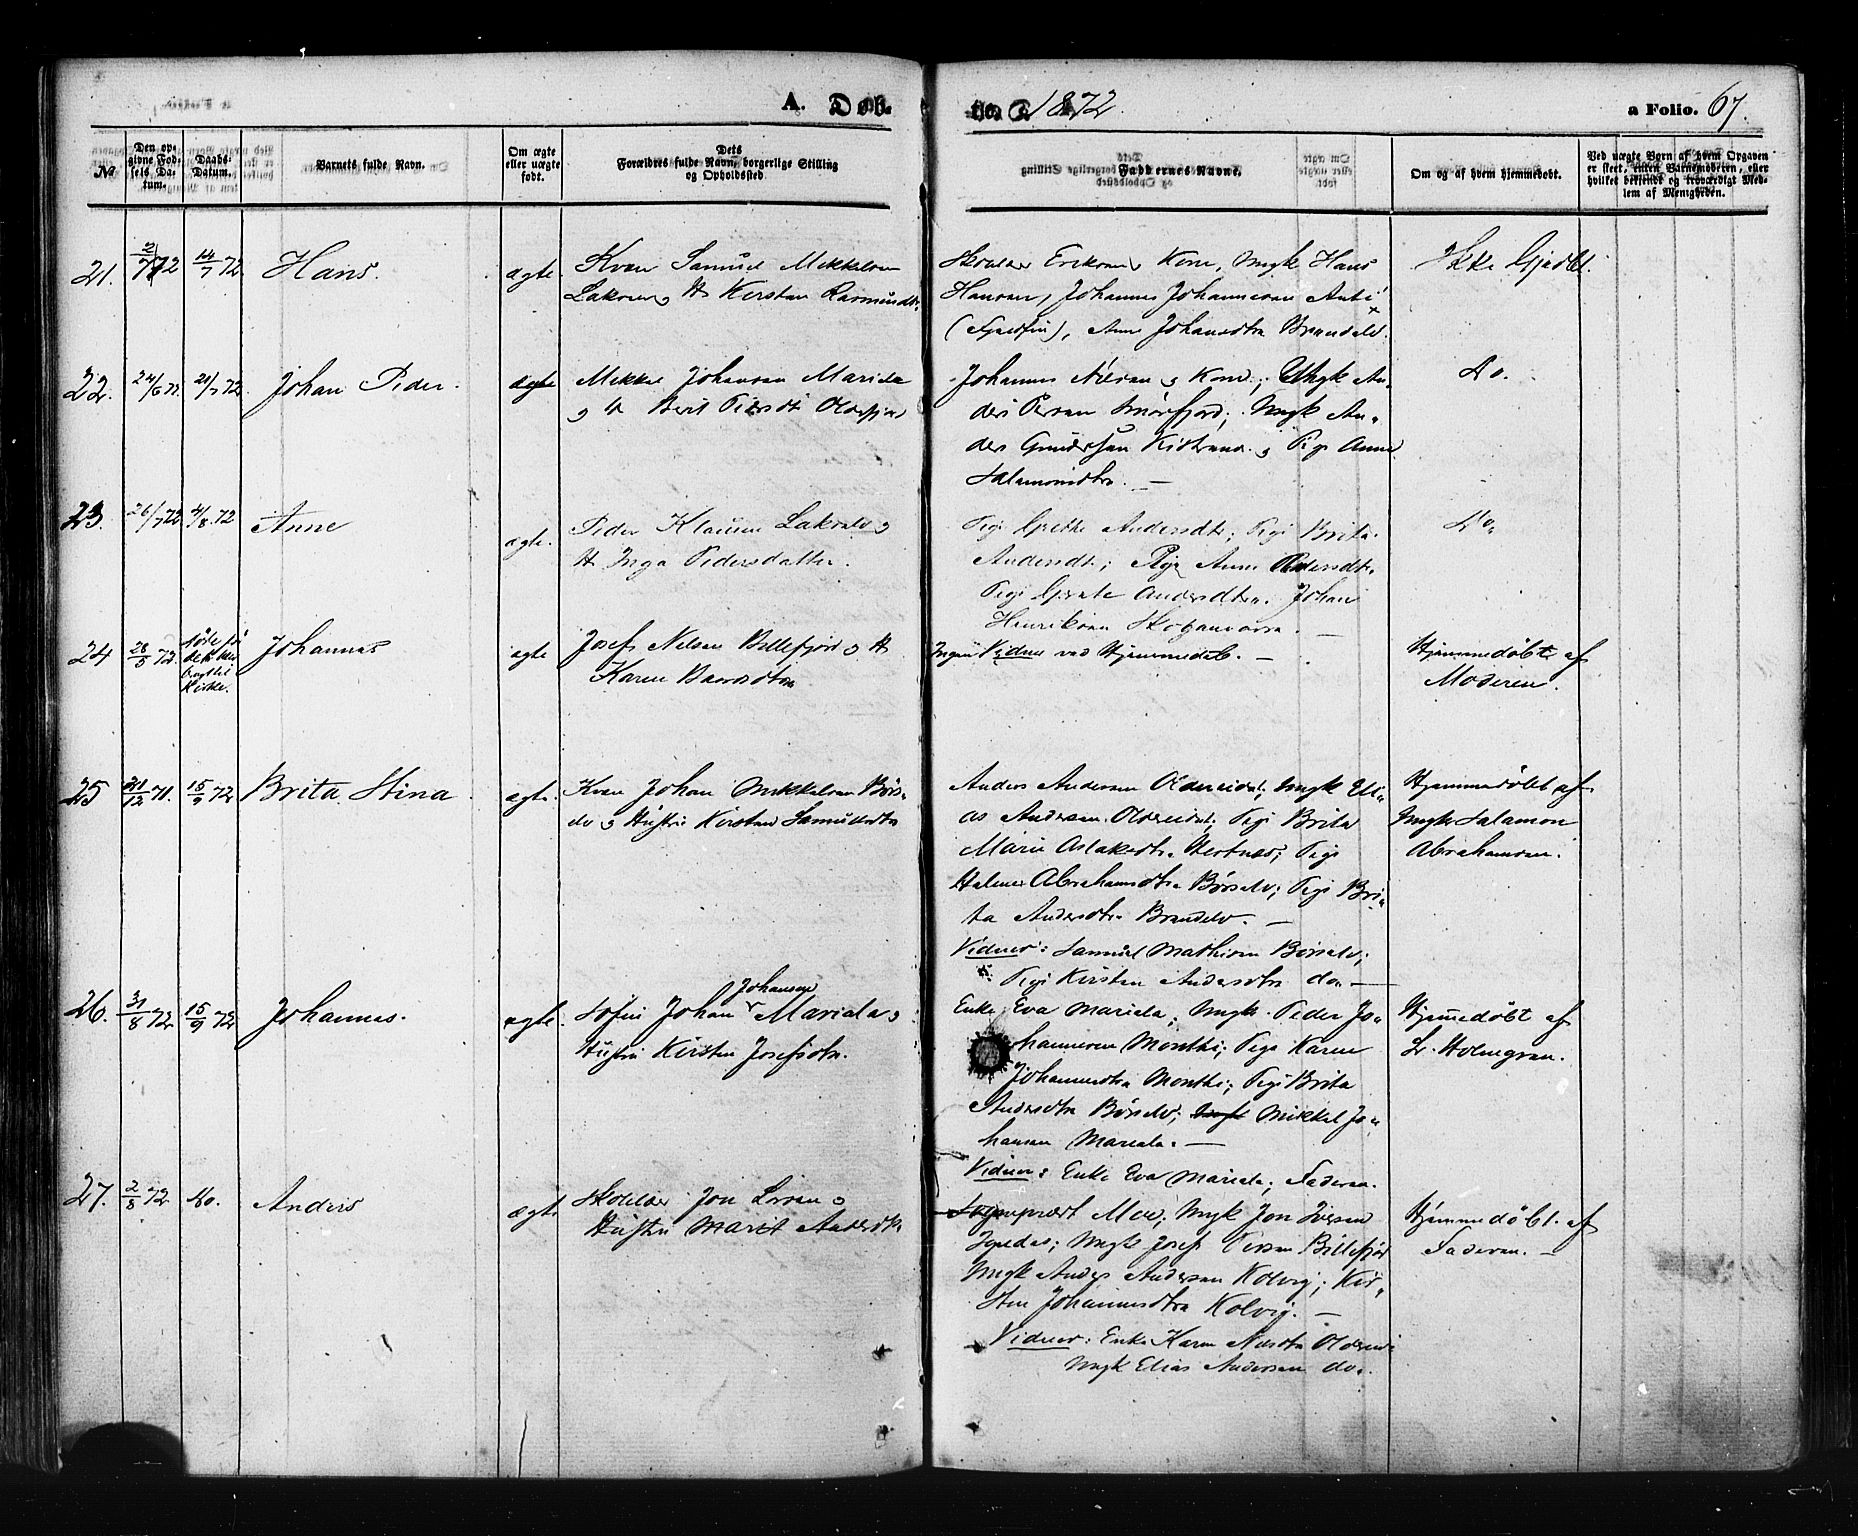 A. Døb. 1872. a Folio. 67.
No
Den opgivne Fødsels Datum.
Daabs-Datum.
Barnets fulde Navn.
Om ægte eller uægte født.
Dets Forældres fulde Navn, borgerlige Stilling og Opholdssted.
Faddernes Navne.
Om og af hvem hjemmedøbt.
Ved uægte Børn af hvem Opgaven er skeet, enten Barnemoderen, eller hvilket bekjendt og troværdigt Medlem af Menigheden.
21. 2/7 72 14/7 72 Hans. ægte.
Kvæn Samuel Mikkelsen
Lakselv, H. Kirsten Rasmusdtr.
Skolelær Eriksen, Kone, Ungk Hans
Hansen, Johannes Johannesen Anti
(Fjeldfin), Anne Johansdtr Brændelv.
Ikke Hjdøbt.
22. 24/6 72. 21/7 72. Johan Peder. ægte
Mikkel Johansen Mariela
og H Berit Piersdt Olderfjord
Johannes Nilsen og Kone; Ungk An-
ders Persen Smørfjord; Ungk An-
ders Gundersen Kistrand og Pige Anne
Salamonsdtr. —
Do.
23. 26/7 72 4/8. 72 Anne ægte.
Peder Klausen Lakselv og
H Inga Pedersdatter.
Pige Grethe Andersdt; Pige Brita
Andersdt; Pige Anne Pedersdt.
Pige Grete Andersdtr. Johan
Henriksen Skoganvarre. —
Do.
24 28/5 72. døde før det blev bragt til Kirke. Johannes ægte
Josef Nilsen Billefjord og H
Karen Baardsdtr
Ingen Vidner ved Hjemmedåb. —
Hjemmedøbt af
Moderen.
25 21/12 71. 15/9 72 Brita Stina ægte.
Kvæn Johan Mikkelsen Børs-
elv og Hustru Kirsten Samuelsdtr
Anders Andersen Oldereidet; Ungk Eli-
as Andersen Oldereidet; Pige Brita
Marie Aslaksdtr Hestnæs; Pige
Helene Abrahamsdtr Børselv; Pige Bri-
ta Andersdtr Brændelv. —
Vidner: Samuel Mathisen Børselv;
Pige Kirsten Andersdtr do. —
Hjemmedøbt af
Ungk Salamon
Abrahamsen.
26. 31/8 72 15/9 72 Johannes. ægte.
Johansen
Søfin Johan Mariela og
Hustru Kirsten Josefsdtr.
Enke Eva Mariela, Ungk. Peder Jo-
hannesen Monthi; Pige Karen
Johannesdtr Monthi; Pige Brita
Andersdtr Børselv; Ungk Mikkel Jo-
hansen Mariela. —
Vidner: Enke Eva Mariela, Faderen.
Hjemmedøbt af
Lr. Holmgren.
27. 2/8 72 do. Anders ægte
Skolelær Jon Iversen og
Hustru Maret Andersdtr
Sogneprest Moe; Ungk Jon Iversen
Igeldas; Ungk Josef Persen Billefjord
Ungk Anders Andersen Kolvig; Kir-
sten Johannesdtr Kolvig. —
Vidner: Enke Karen Nilsdtr Oldereid
Ungk Elias Andersen do.
Hjemmedøbt af
Faderen. —